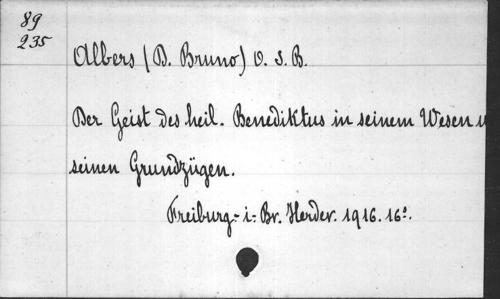 89
235
Albers (D. Bruno) O. S. B.
Der Geist des heil. Benediktus in seinem Wesen u
seinen Grundzügen.
Freiburg-i-Br. Herder. 1916. 16º.